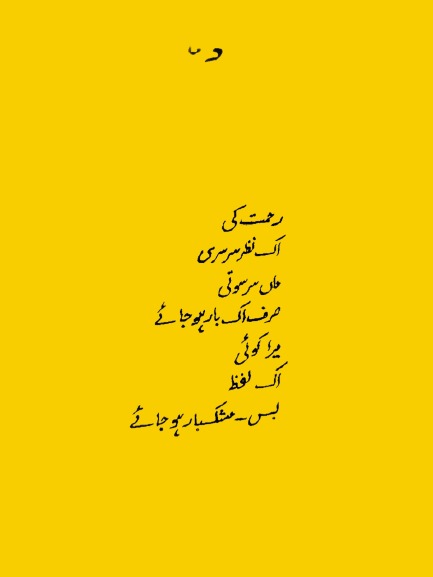 رحمت کی
اک نظر سرسری
ماں سرسوتی
صرف اک بار ہو جائے
میرا کوئی
اک لفظ
بس۔مشکبار ہو جائے